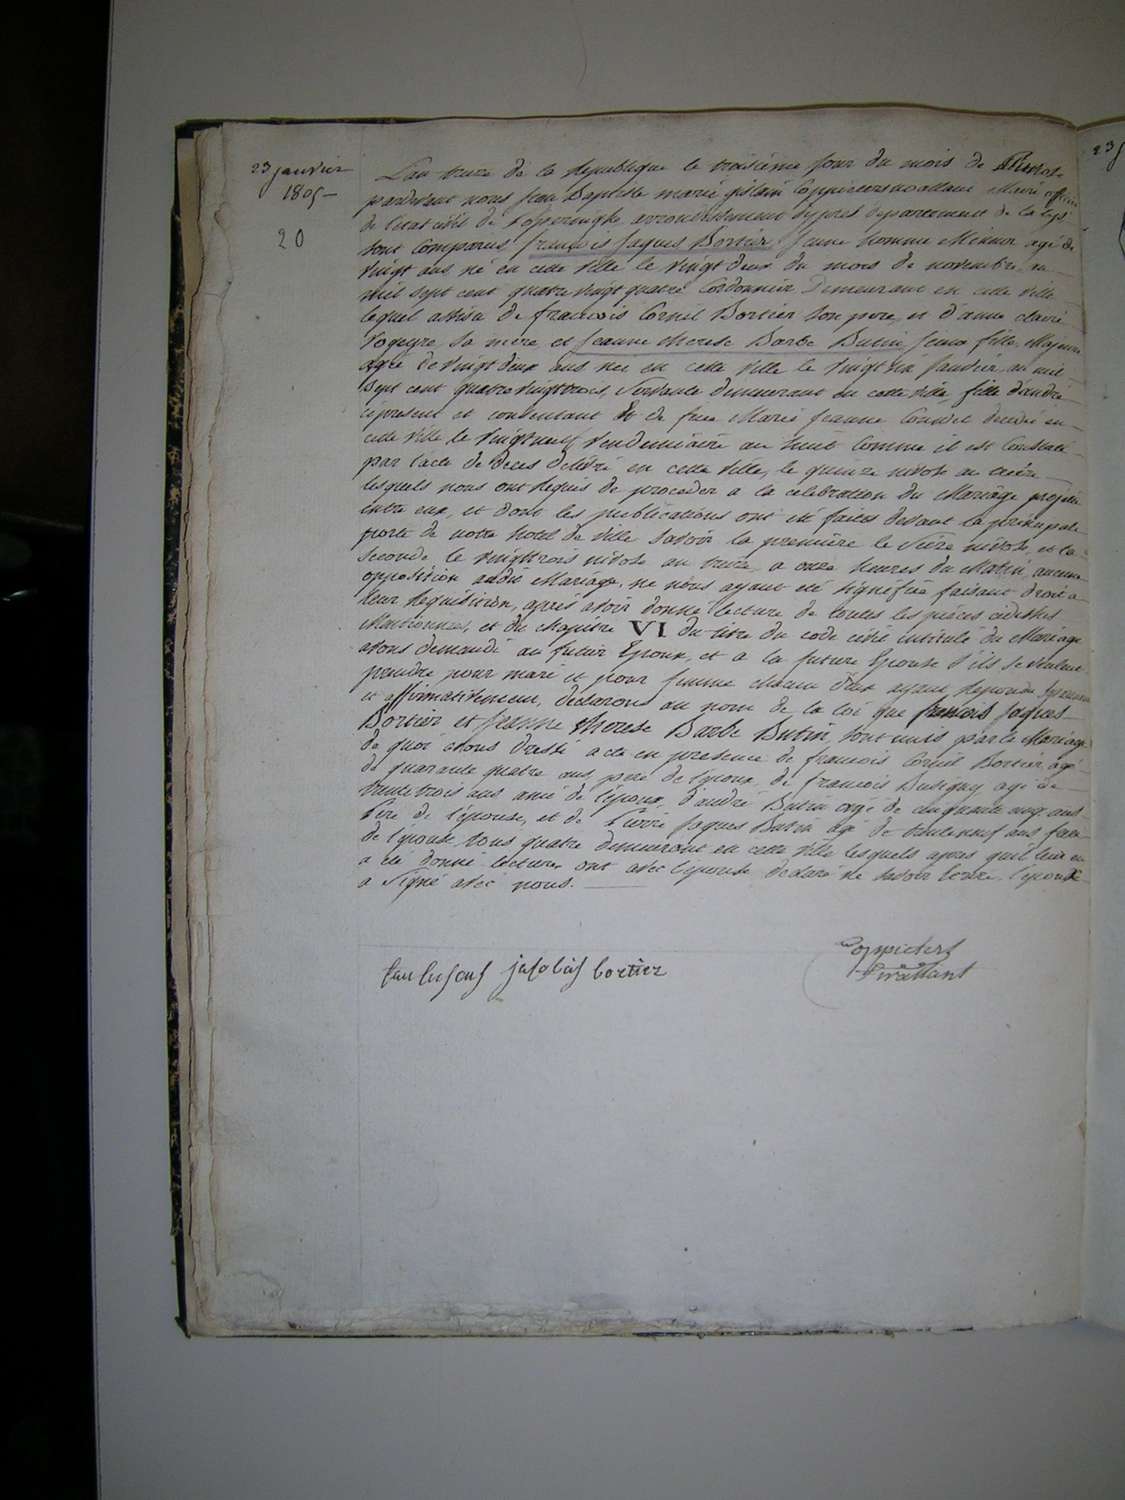 23 janvier
1805 –
20
L'an treize de la Republique le troisieme jour du mois de Pluviose
pardevant nous Jean Baptiste marie gislain Coppieters Maire officier
de l'etat civil de Poperinghe arrondissement d'ypres departement de la Lys
sont Comparus francois Jaques Bortier Jeune homme Mineur agé de
vingt ans né en cette ville le vingt deux du mois de novembre
mil sept cent quatre vingt quatre Cordonnier Demeurant en cette ville
lequel assisté de francois Cornil Bortier son pere, et d'anne claire
sa mere et Jeanne therese Barbe Butin Jeune fille Majeure
Agée de vingt deux ans née en cette ville le vingt six Janvier an mil
sept cent quatre vingt trois, Servante demeurant en cette ville, fille d'andré
ci present et consentant et de feue Marie Jeanne decedée en
cette ville le vingt neuf vendemiaire an huit Comme il est Constaté
par l'acte de Deces delivré en cette ville, le quinze nivose an treize
lesquels nous ont Requis de proceder a la celebration du Mariage projetté
entre eux, et dont les publications ont été faites devant la principale
porte de notre hotel de ville savoir la premiere le Seize nivose, et la
seconde le vingt trois nivose an treize a onze heures du Matin, aucune
opposition audit Mariage, ne nous ayant eté signifiée faisant droit a
leur Requisition, après avoir donné lecture de toutes les pièces cidessus
Mentionnées, et du chapitre VI du titre du code civil intitulé du Mariage
avons demandé au futur Epoux, et a la future Epouse s'ils se veulent
prendre pour mari et pour femme chacun d'eux ayant Repondu
et affirmativement, declarons au nom de la loi que francois Jaques
Bortier et Jeanne therese Barbe Butin, sont unis par le Mariage
de quoi avons dressé acte en presence de francois Cornil Bortier, agé
de quarante quatre ans, pere de l'epoux, de francois Dusigny agé de
trente trois ans ami de l'époux, d'andré Butin agé de cinquante ans
Père de l'épouse, et de Pierre Jaques Butin agé de trente neuf ans frere
de l'épouse, tous quatre demeurant en cette ville lesquels apres qu'il leur en
a été donné lecture, ont avec l'épouse declaré ne savoir Ecrire, l'epoux
a Signé avec nous.
bortier
Coppieters